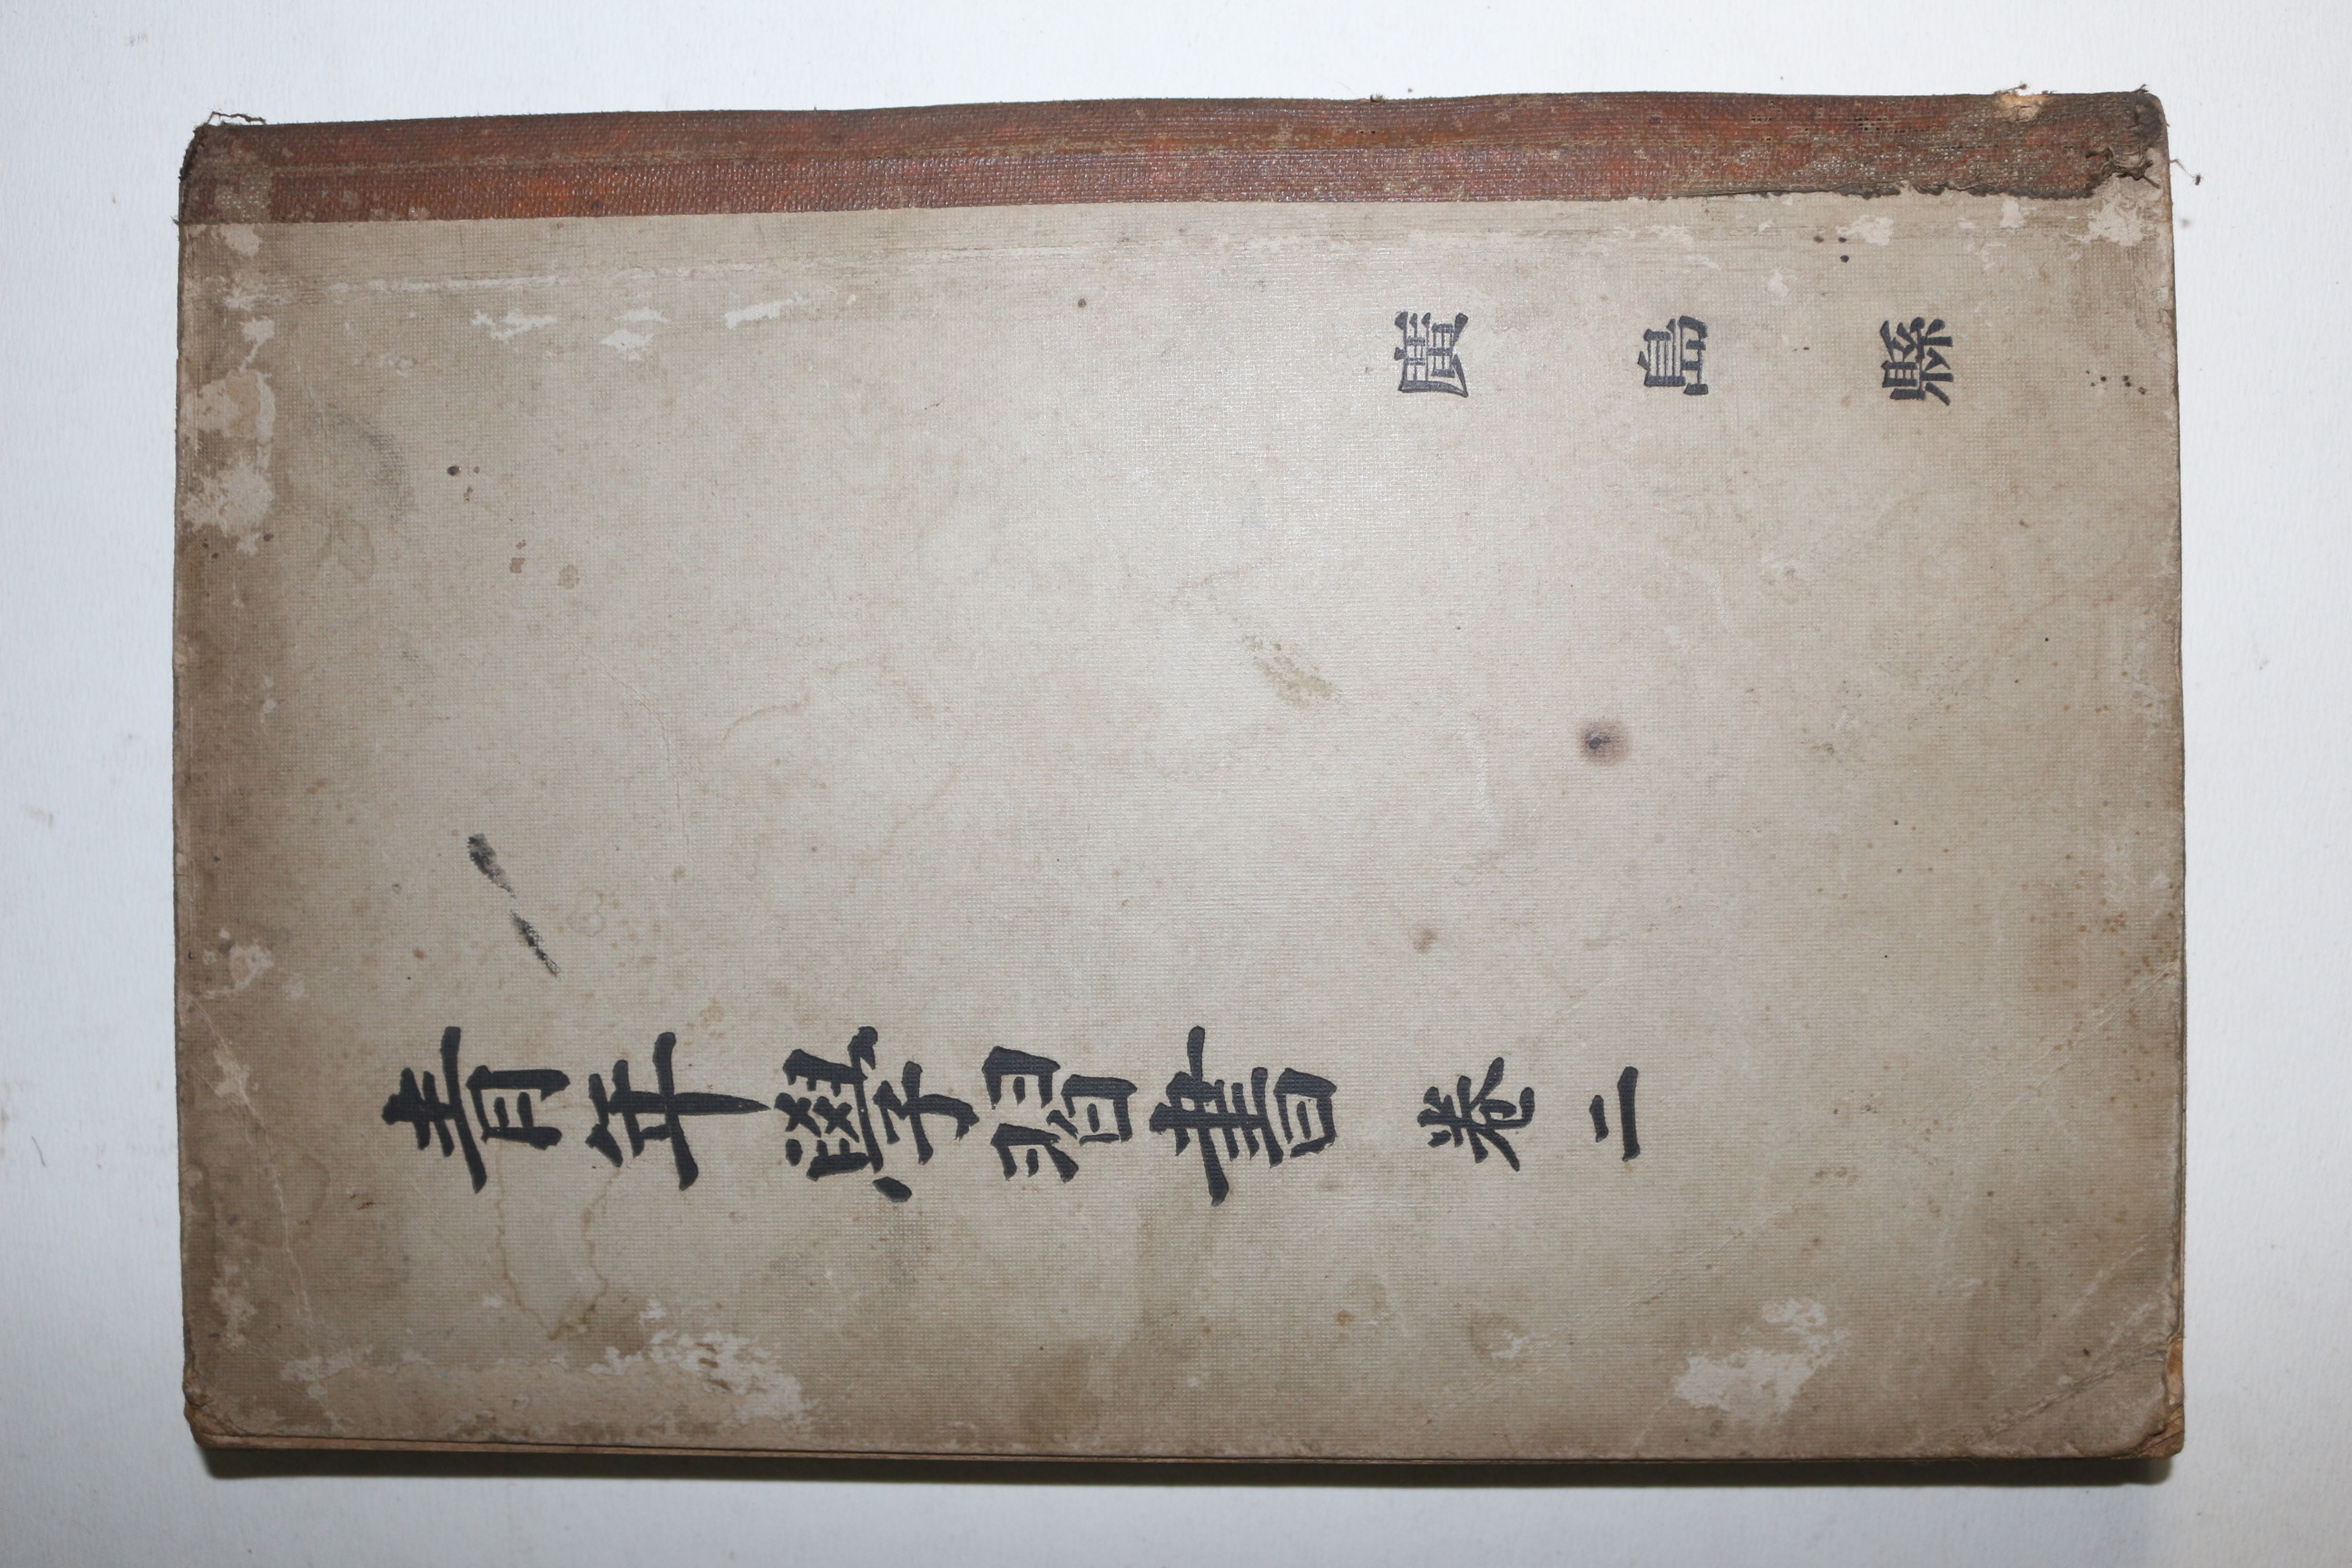 青年學習書 卷二
廣島縣